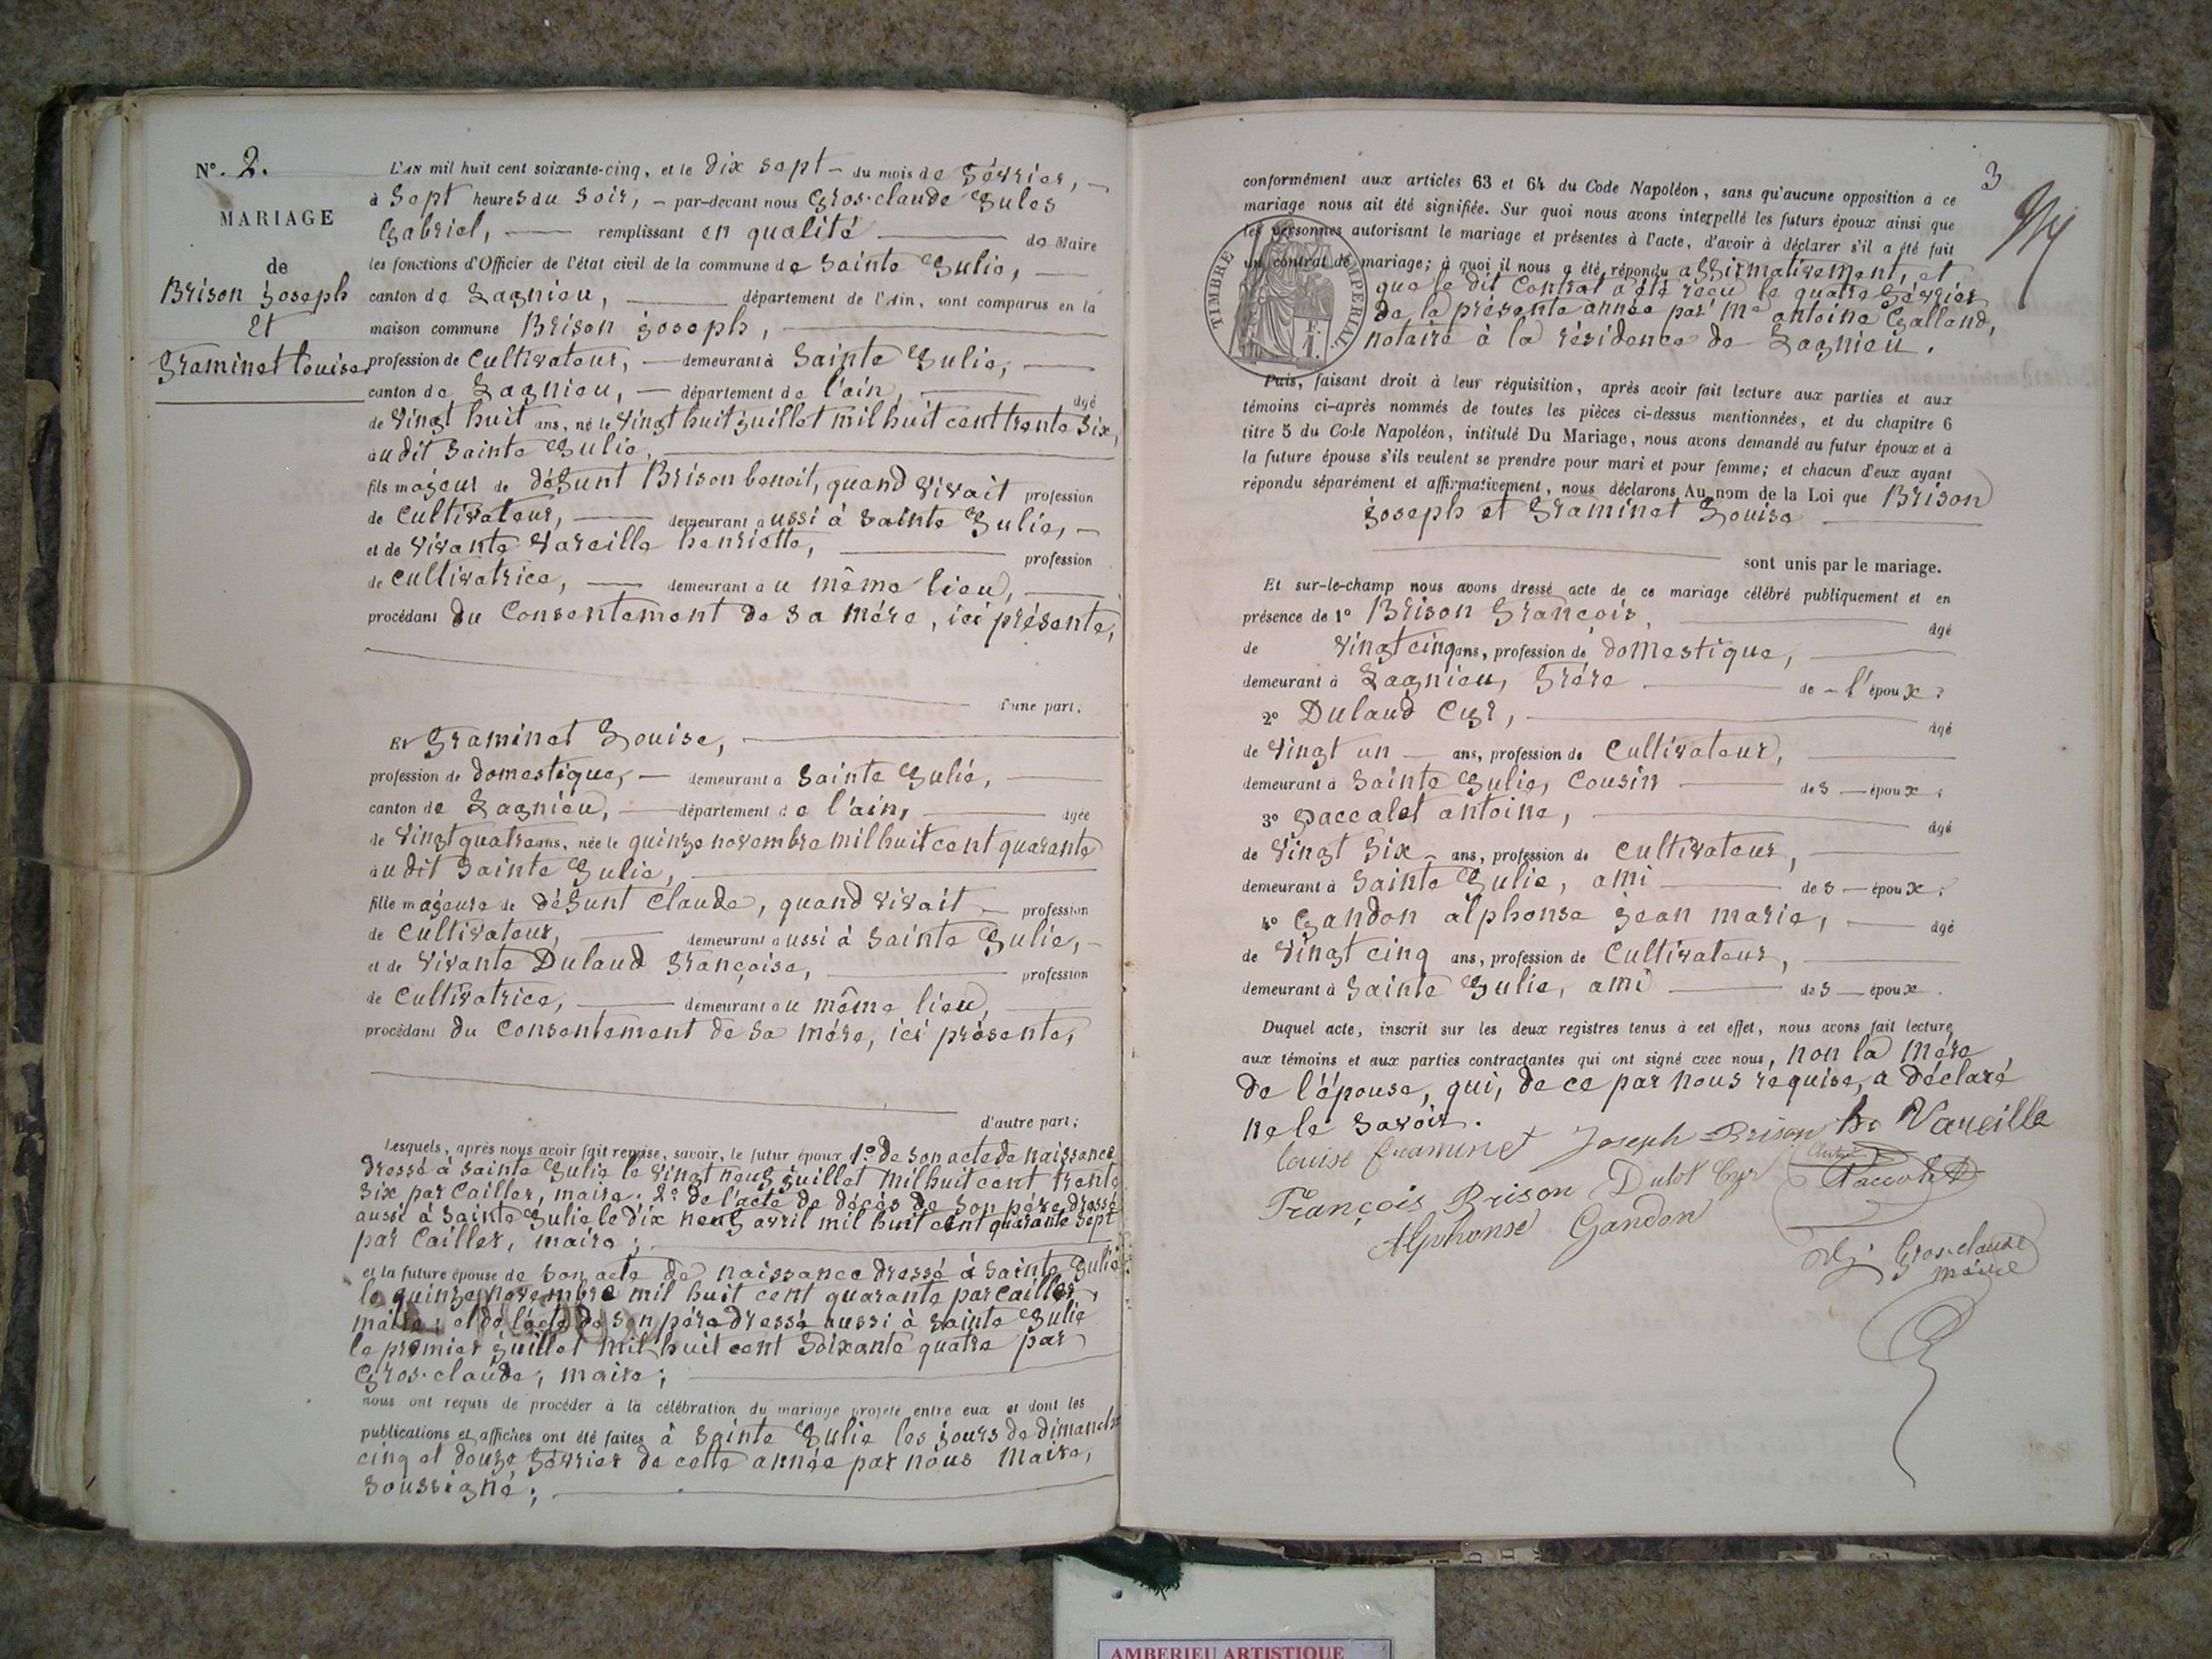 N°. 2.
MARIAGE
de
Brison joseph
Et
Framinet Louise
L'AN mil huit cent soixante-cinq, et le dix sept – du mois de février, –
à sept heures du soir, – par-devant nous Gros-claude Jules
Gabriel, — remplissant en qualité — de Maire
les fonctions d'Officier de l'état civil de la commune de sainte Julie, —
canton de Lagnieu, — département de l'Ain, sont comparus en la
maison commune Brison joseph, —
profession de Cultivateur, — demeurant à Sainte Julie, —
canton de Lagnieu, — département de l'ain, — âgé
de vingt huit ans, né le vingt huit juillet mil huit cent trente six,
audit sainte Julie, —
fils majeur de défunt Brison benoit, quand vivait profession
de Cultivateur, — demeurant aussi à sainte Julie, –
et de vivante Vareille henriette, — profession
de cultivatrice, — demeurant au même lieu, —
procédant du Consentement de sa mére, ici présente,
d'une part;
Et Framinet Louise, —
profession de domestique, — demeurant à Sainte Julie, —
canton de Lagnieu, — département de l'ain, — âgée
de vingt quatre ans, née le quinze novembre mil huit cent quarante
audit sainte Julie, —
fille majeure de défunt Claude, quand vivait – profession
de Cultivateur, — demeurant aussi à sainte Julie, –
et de vivante Dulaud françoise, — profession
de Cultivatrice, — demeurant au même lieu, —
procédant du Consentement de sa mére, ici présente,
d'autre part;
Lesquels, après nous avoir fait remise, savoir, le futur époux 1.° de son acte de naissance
dressé à sainte Julie le vingt neuf juillet mil huit cent trente
six par Cailler, maire. 2.° de l'acte de décès de son pére dressé
aussi à Sainte Julie le dix neuf avril mil huit cent quarante sept
par Cailler, maire; —
et la future épouse de son acte de naissance dressé à sainte Julie
le quinze novembre mil huit cent quarante par Cailler,
maire; et de l'acte de son pére dressé aussi à sainte Julie
le premier juillet mil huit cent soixante quatre par
Gros-claude, maire; —
nous ont requis de procéder à la célébration du mariage projeté entre eux et dont les
publications et affiches ont été faites à sainte Julie les jours de dimanche
cinq et douze février de cette année par nous Maire,
soussigné; —
3
conformément aux articles 63 et 64 du Code Napoléon, sans qu'aucune opposition à ce
mariage nous ait été signifiée. Sur quoi nous avons interpellé les futurs époux ainsi que
les personnes autorisant le mariage et présentes à l'acte, d'avoir à déclarer s'il a été fait
un contrat de mariage; à quoi il nous a été répondu affirmativement, et
que le dit Contrat a été reçu le quatre février
de la présente année par Me antoine Galland,
notaire à la résidence de Lagnieu.
TIMBRE IMPERIAL
Puis, faisant droit à leur réquisition, après avoir fait lecture aux parties et aux
témoins ci-après nommés de toutes les pièces ci-dessus mentionnées, et du chapitre 6
titre 5 du Code Napoléon, intitulé Du Mariage, nous avons demandé au futur époux et à
la future épouse s'ils veulent se prendre pour mari et pour femme; et chacun d'eux ayant
répondu séparément et affirmativement, nous déclarons Au nom de la Loi que Brison
joseph et Framinet Louise —
sont unis par le mariage.
Et sur-le-champ nous avons dressé acte de ce mariage célébré publiquement et en
présence de 1° Brison François, — âgé
de vingt cinq ans, profession de domestique, —
demeurant à Lagnieu, frére — de – l'époux;
2° Dulaud Cyr, — âgé
de vingt un — ans, profession de Cultivateur, —
demeurant à Sainte Julie, Cousin — des — époux;
3° Paccalet antoine, — âgé
de vingt six – ans, profession de Cultivateur, —
demeurant à Sainte Julie, ami — des — époux;
4° Gandon alphonse jean marie, — âgé
de vingt cinq ans, profession de Cultivateur, —
demeurant à Sainte Julie, ami — des — époux.
Duquel acte, inscrit sur les deux registres tenus à cet effet, nous avons fait lecture
aux témoins et aux parties contractantes qui ont signé avec nous, non la mére
de l'épouse, qui, de ce par nous requise, a déclaré
ne le savoir.
Louise framinet Joseph Brison Vareille
François Brison Cyr
Alphonse Gandon
Gros-claude
maire
AMBERIEU ARTISTIQUE